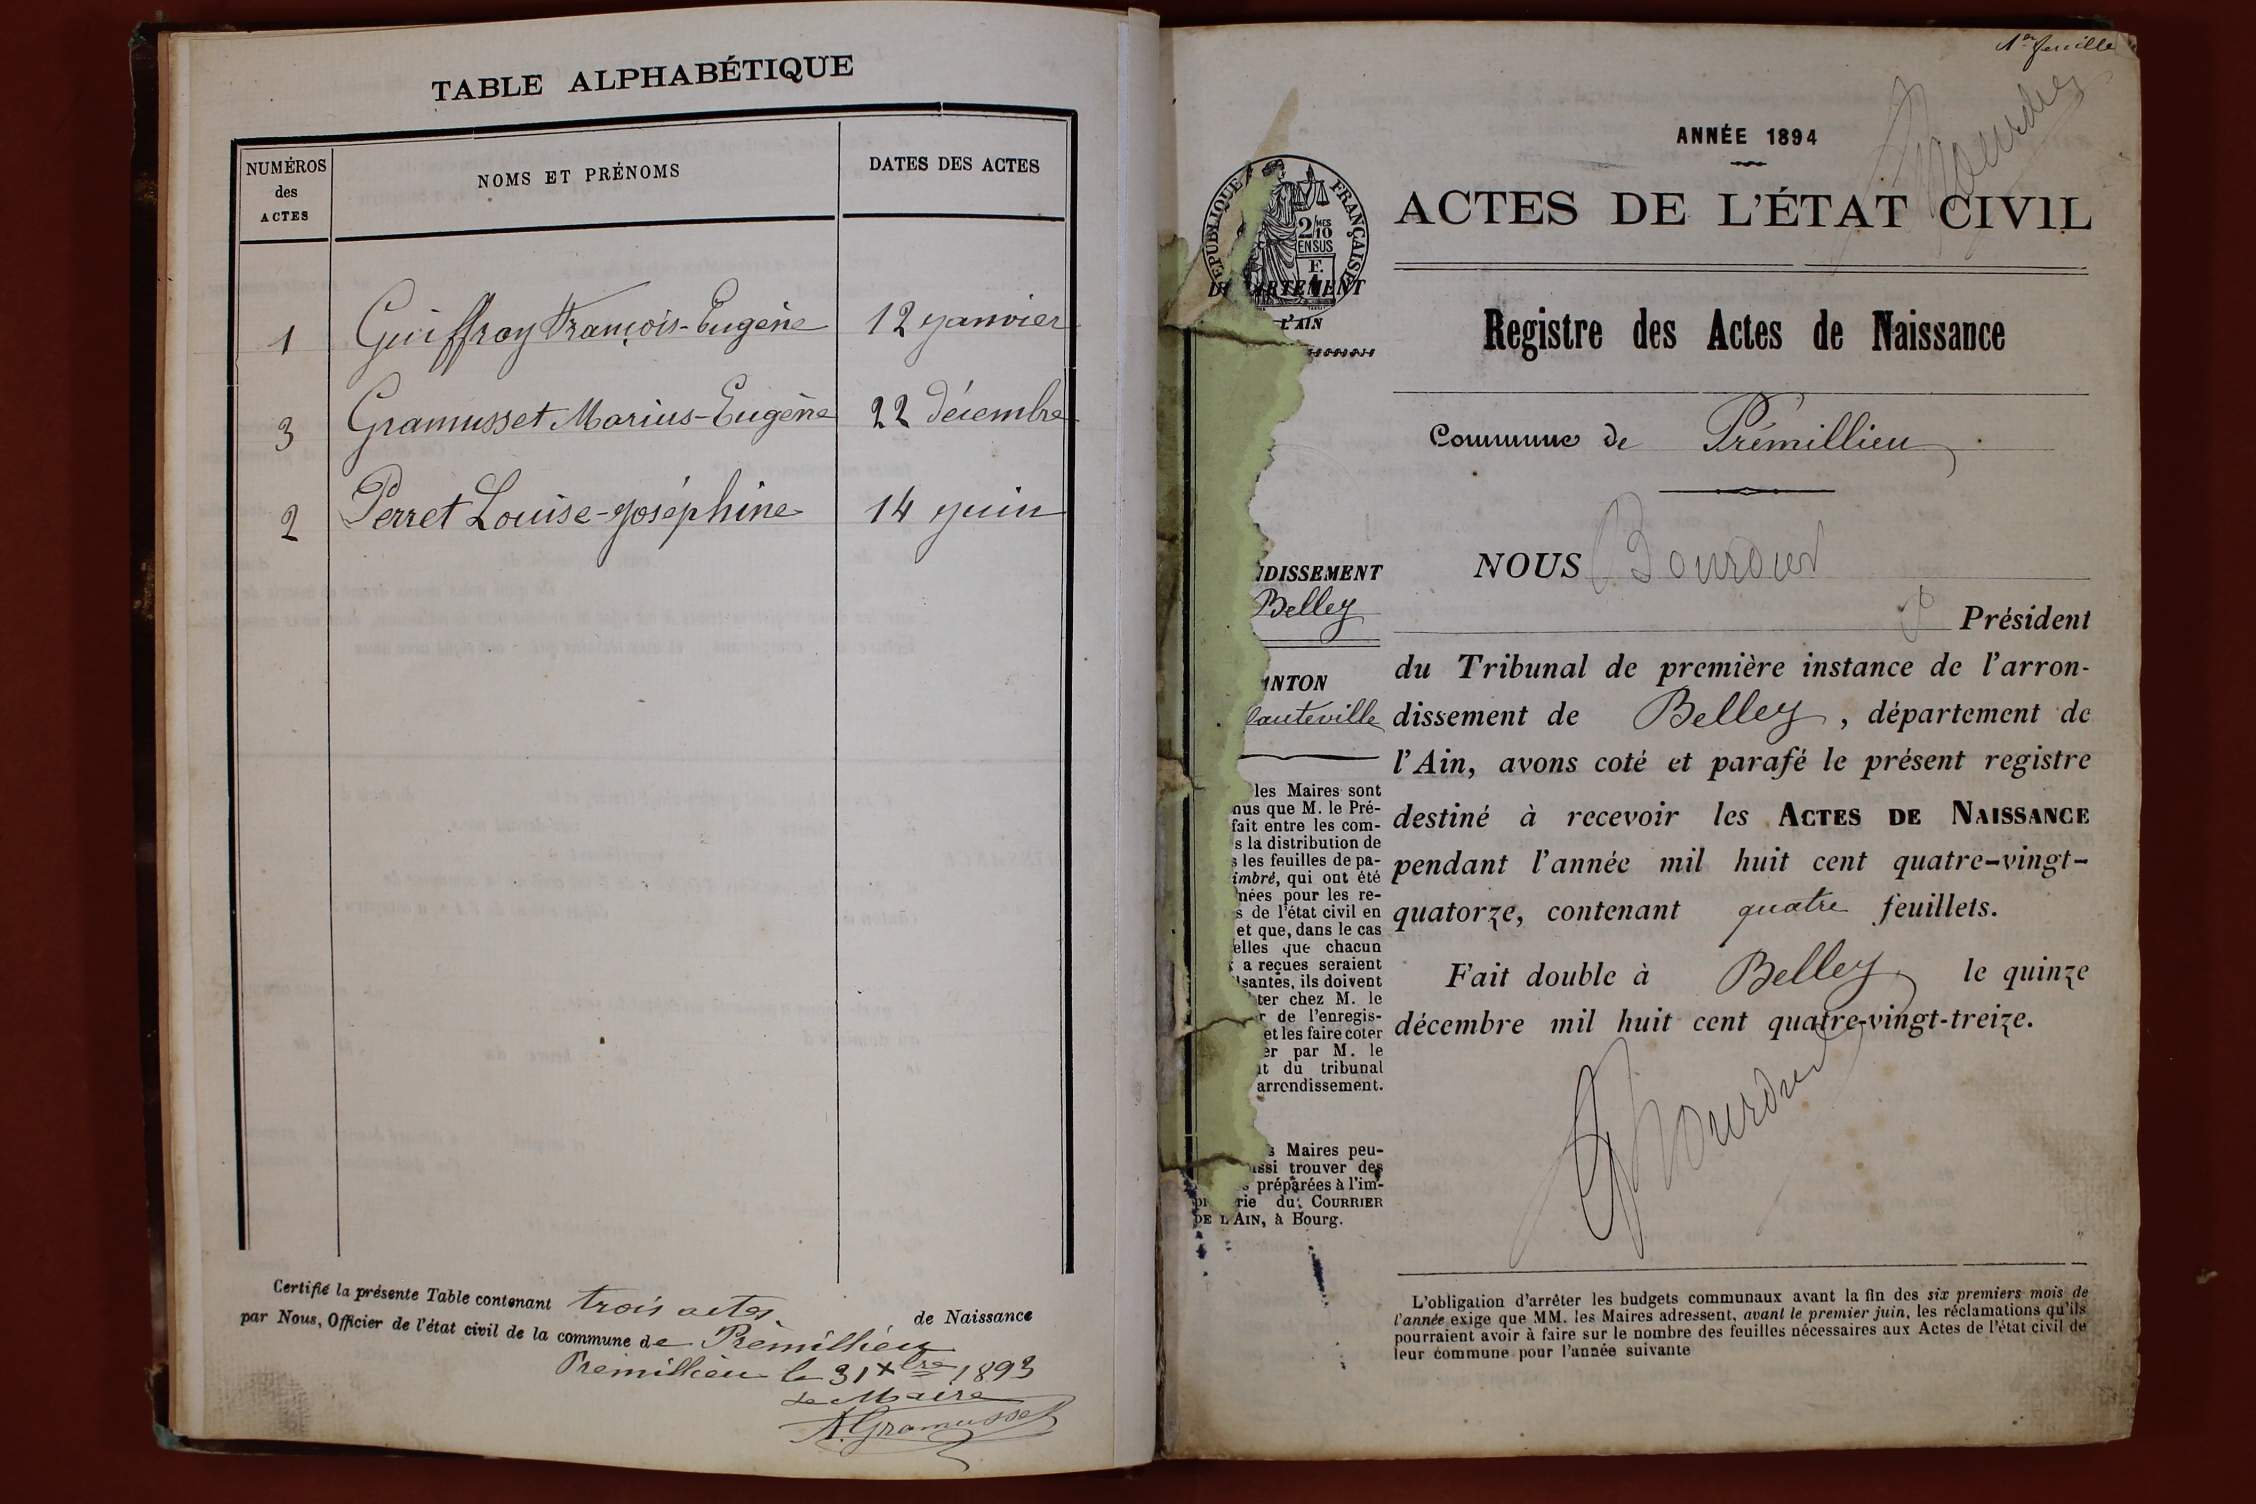 TABLE ALPHABÉTIQUE
NUMÉROS des ACTES
NOMS ET PRÉNOMS
DATES DES ACTES
1 Guiffray François-Eugène 12 janvier
3 Gramusset Marius-Eugène 22 décembre
2 Perret Louise-Joséphine 14 juin
Certifié la présente Table contenant trois actes de Naissance
par Nous, Officier de l'état civil de la commune de Prémillieu
Prémillieu le 31 Xbre 1893
Le Maire
A. Gramusset
1er feuille
ANNÉE 1894
ACTES DE L'ÉTAT CIVIL
RÉPUBLIQUE FRANÇAISE
2/10
MES
EN SUS
F.
1
DÉPARTEMENT
L'AIN
Registre des Actes de Naissance
Commune de Prémillieu
NDISSEMENT
Belley
NTON
auteville
NOUS Bourdin
Président
du Tribunal de première instance de l'arron-
dissement de Belley, département de
l'Ain, avons coté et parafé le présent registre
destiné à recevoir les ACTES DE NAISSANCE
pendant l'année mil huit cent quatre-vingt-
quatorze, contenant quatre feuillets.
Fait double à Belley, le quinze
décembre mil huit cent quatre-vingt-treize.
Bourdin
les Maires sont
nus que M. le Pré-
fait entre les com-
s la distribution de
s les feuilles de pa-
imbré, qui ont été
nées pour les re-
s de l'état civil en
et que, dans le cas
elles que chacun
a reçues seraient
santes, ils doivent
ter chez M. le
r de l'enregis-
et les faire coter
er par M. le
t du tribunal
arrondissement.
s Maires peu-
ssi trouver des
s préparées à l'im-
rie du COURRIER
DE L'AIN, à Bourg.
L'obligation d'arrêter les budgets communaux avant la fin des six premiers mois de
l'année exige que MM. les Maires adressent, avant le premier juin, les réclamations qu'ils
pourraient avoir à faire sur le nombre des feuilles nécessaires aux Actes de l'état civil de
leur commune pour l'année suivante